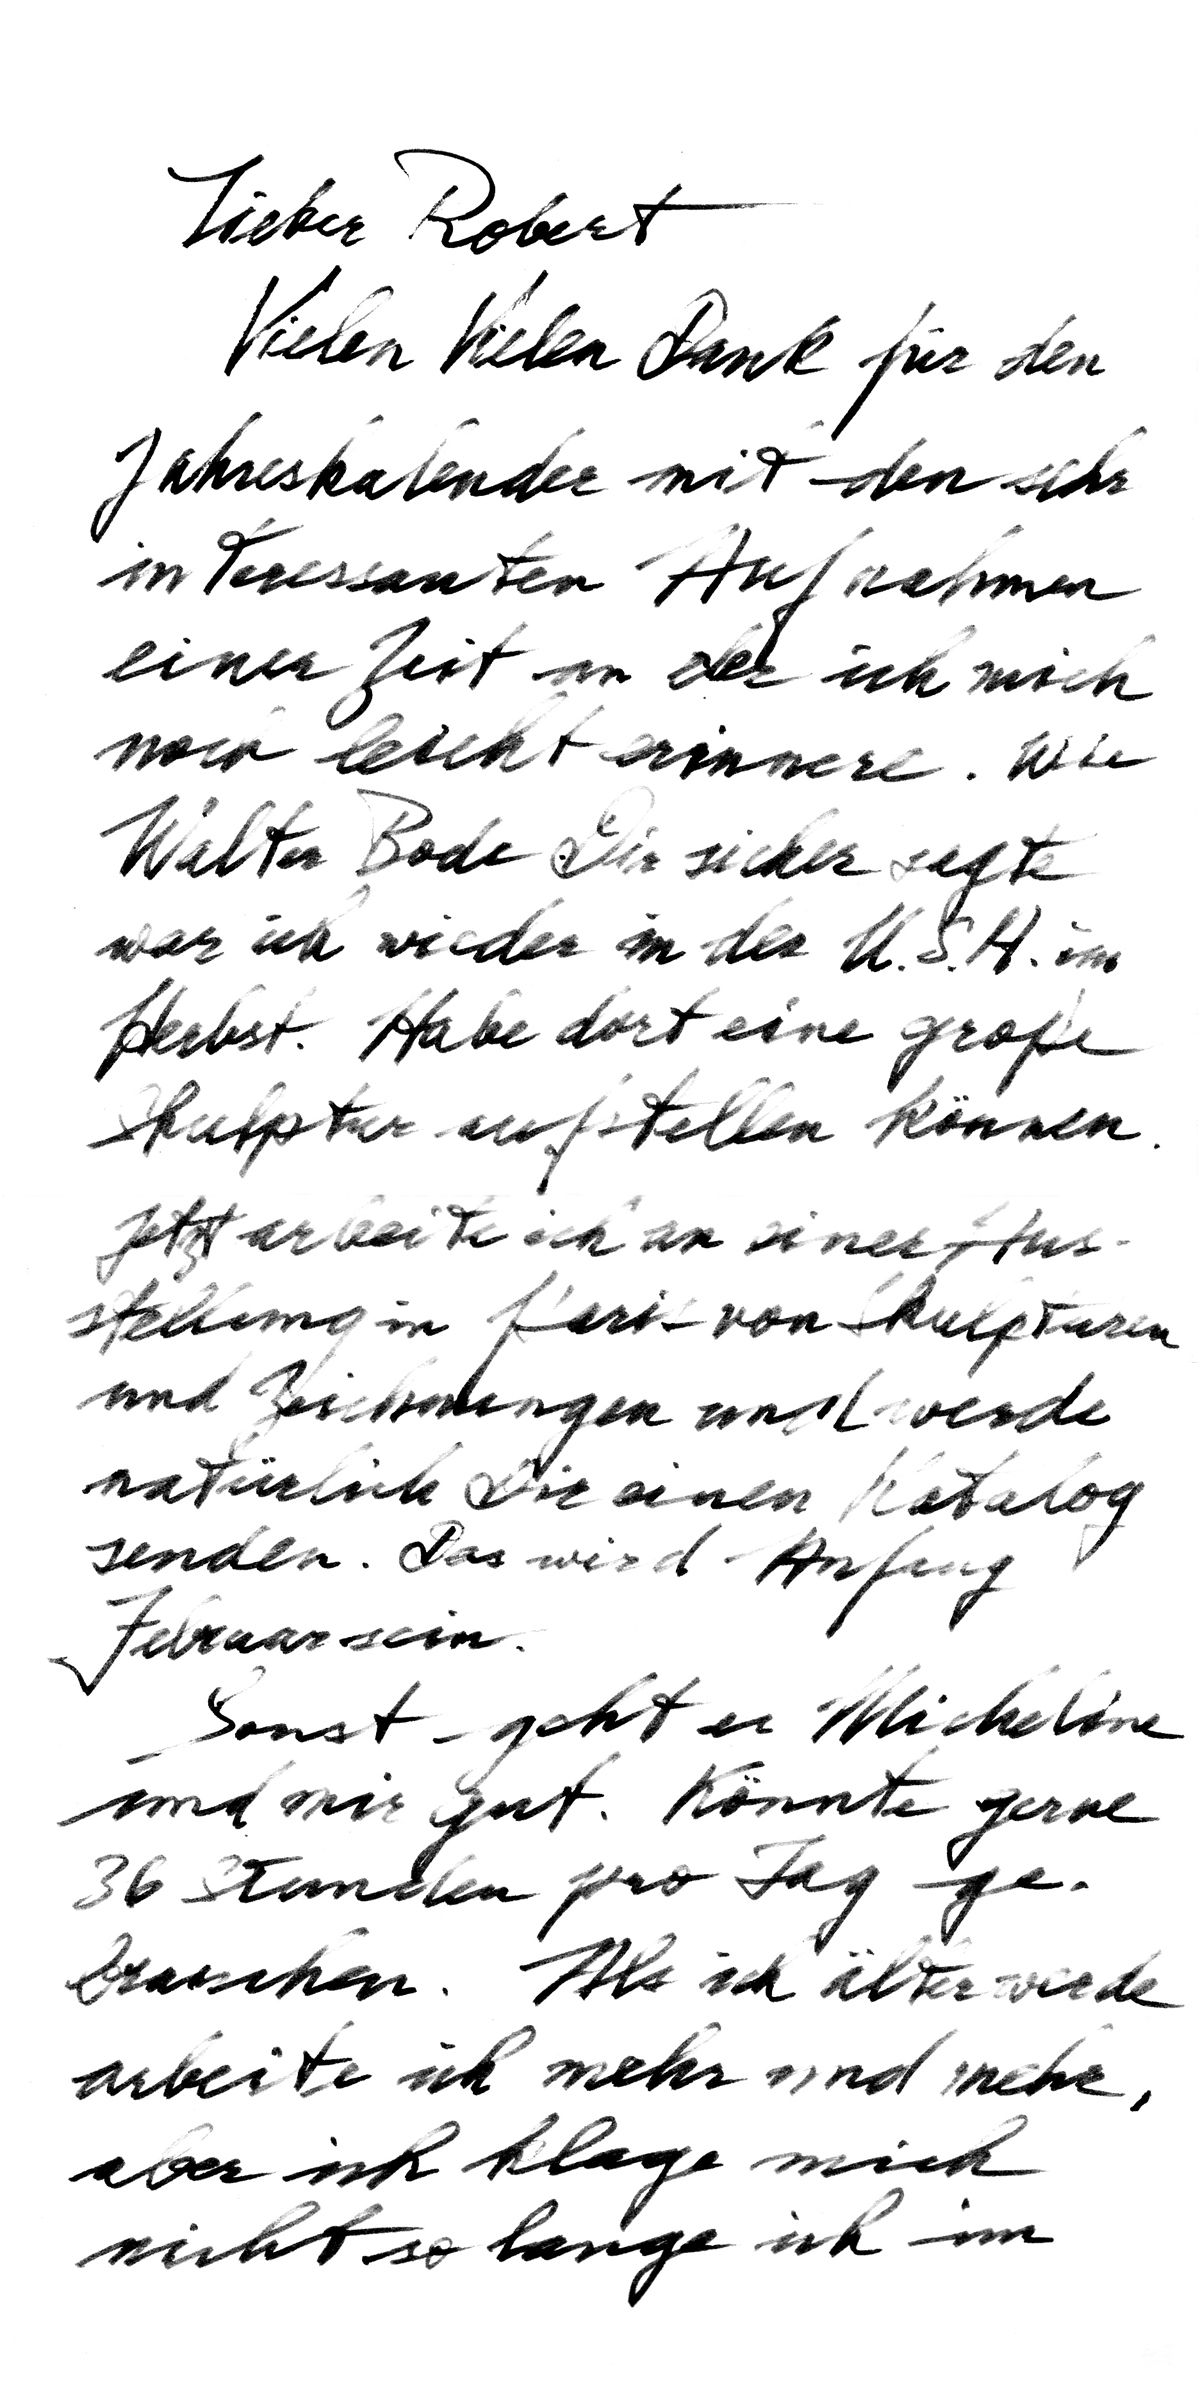 Lieber Robert
Vielen Vielen Dank für den
Jahreskalender mit den sehr
interessanten Aufnahmen
einer Zeit an der ich mich
noch leicht erinnere. Wie
Walter Bode Dir sicher sagte
war ich wieder in der U.S.A. im
Herbst. Habe dort eine große
Skulptur aufstellen können.
Jetzt arbeite ich an einer Aus-
stellung in Paris von Skulpturen
und Zeichnungen und werde
natürlich Dir einen Katalog
senden. Das wird Anfang
Februar sein.
Sonst geht es Micheline
und mir gut. Könnte gerne
36 Stunden pro Tag ge-
brauchen. Als ich älter werde
arbeite ich mehr und mehr,
aber ich klage mich
nicht so lange ich im